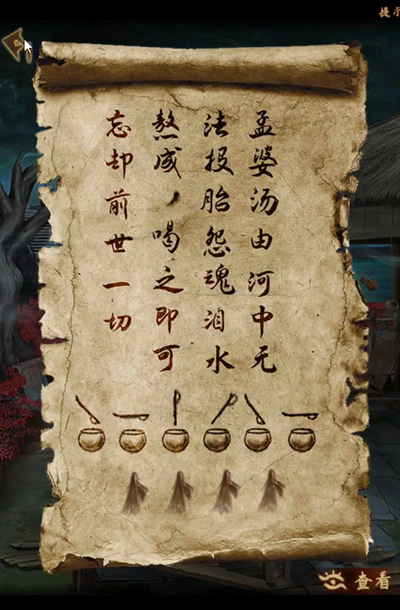 提示
孟婆汤由河中无
法投胎怨魂泪水
熬成，喝之即可
忘却前世一切
查看